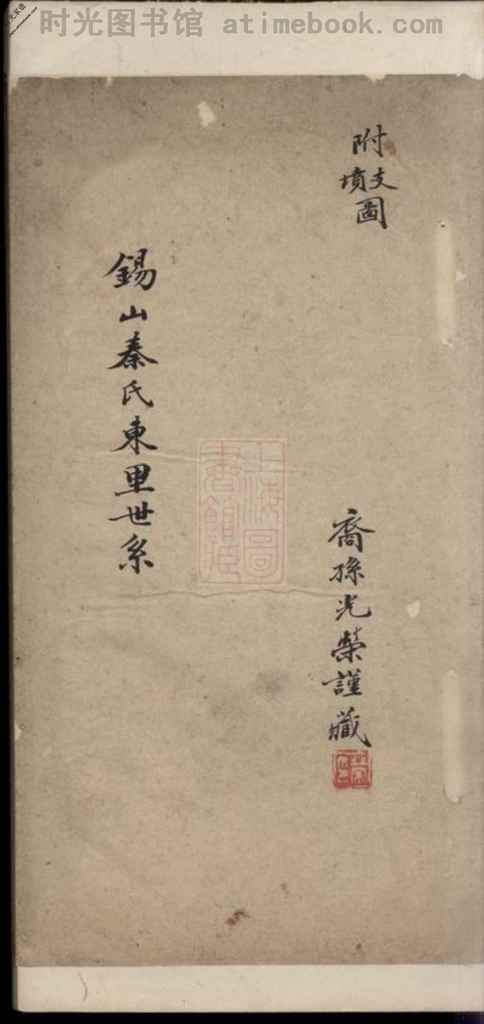 时光图书馆 www.atimebook.com
附支
墳圖
裔孫光榮謹藏
錫山秦氏東里世系
上海圖
書館藏